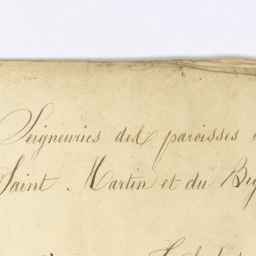 Seigneuries des paroisses
Saint . Martin et du